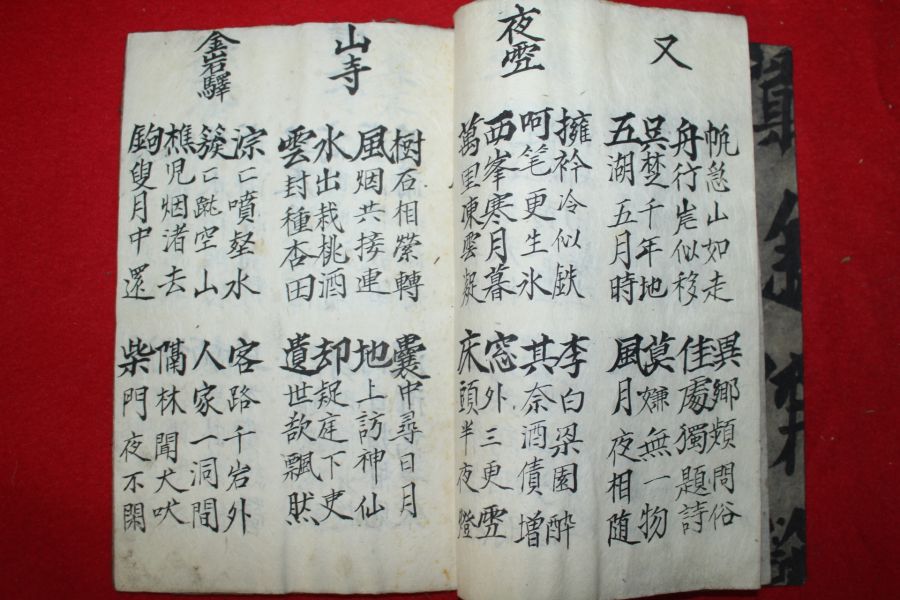 又
帆急山如走
舟行岸似移
異鄉頻問俗
佳處獨題詩
吳楚千年地
五湖五月時
莫嫌無一物
風月夜相随
夜雪
擁衿冷似鉄
呵笔更生氷
李白梁園醉
其奈酒債增
西峯寒月暮
萬里凍雲凝
窓外三更雪
床頭半夜燈
山寺
樹石相縈轉
風烟共接連
囊中尋日月
地上訪神仙
水出栽桃酒
雲封種杏田
却疑庭下吏
遺世欻飄然
金岩驛
淙〻噴壑水
簇〻蹴空山
客路千岩外
人家一洞間
樵児烟渚去
鉤叟月中還
隔林聞犬吠
柴門夜不関